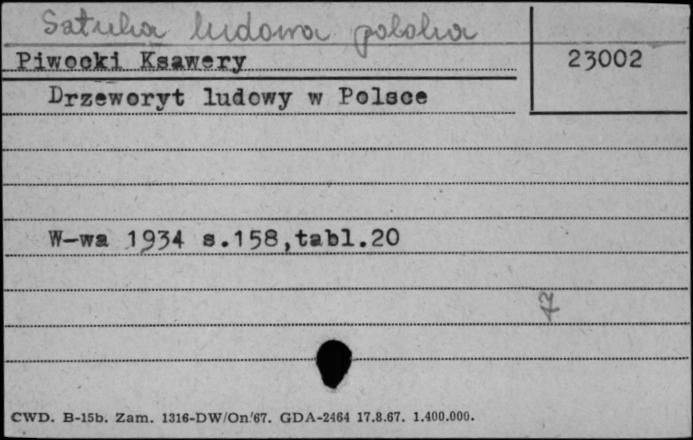 Sztuka ludowa polska
Piwocki Ksawery
23002
Drzeworyt ludowy w Polsce
W-wa 1934 s.158,tabl.20
7
CWD. B-15b. Zam. 1316-DW/On/67. GDA-2464 17.8.67. 1.400.000.